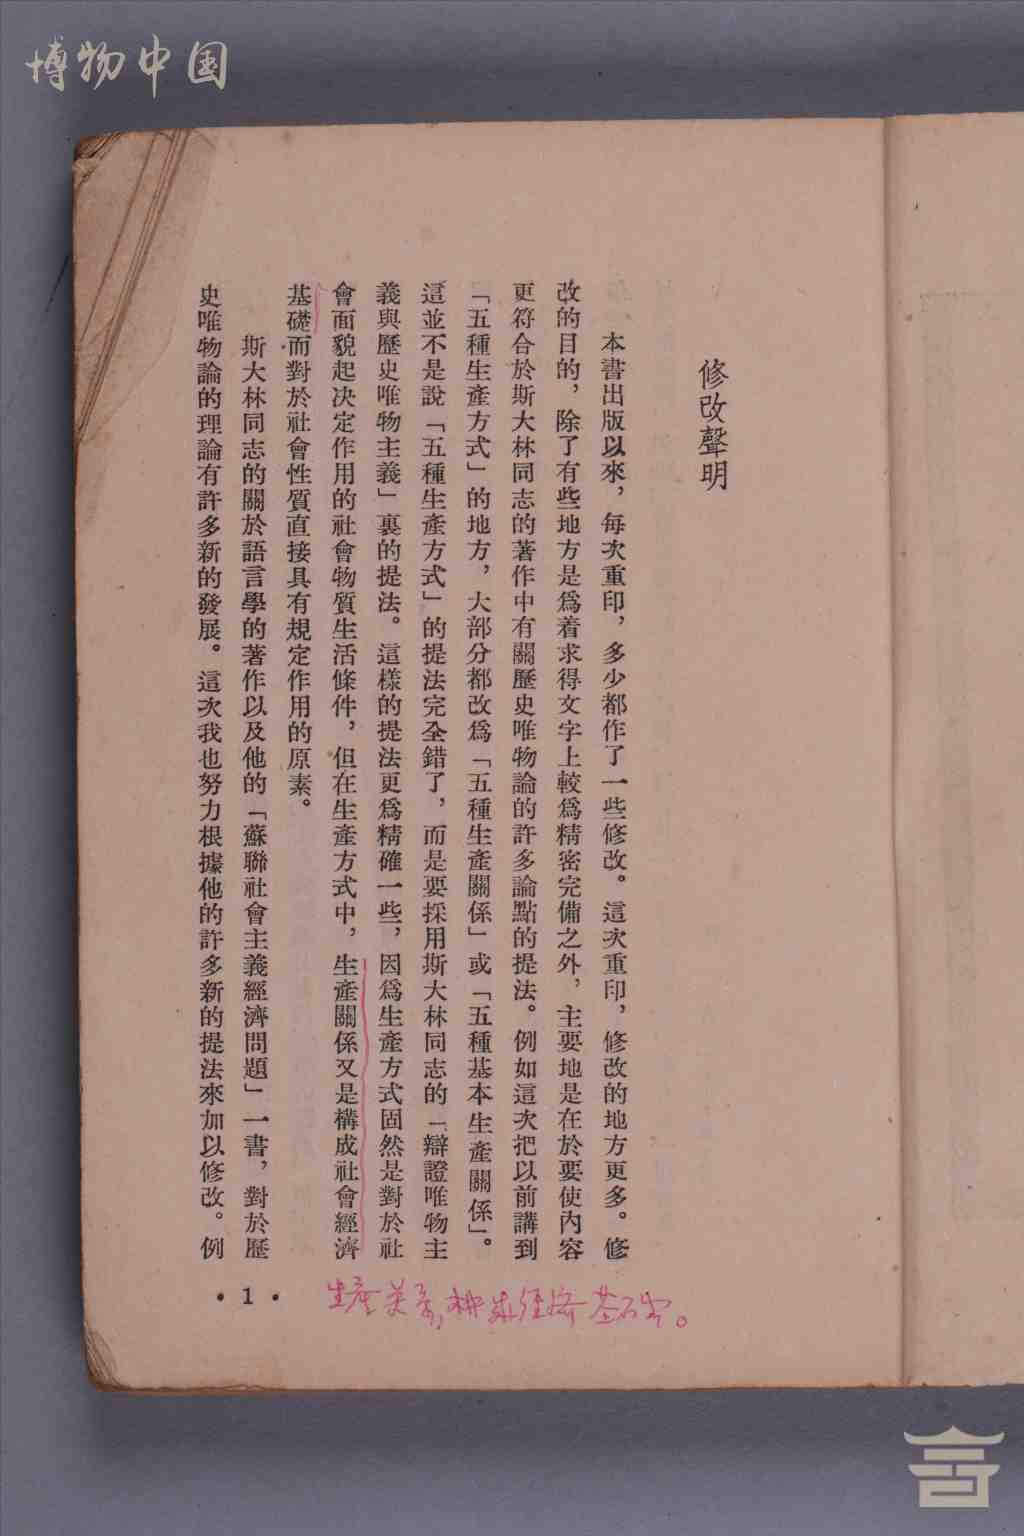 博物中国
修改聲明
本書出版以來，每次重印，多少都作了一些修改。這次重印，修改的地方更多。修
改的目的，除了有些地方是爲着求得文字上較爲精密完備之外，主要地是在於要使內容
更符合於斯大林同志的著作中有關歷史唯物論的許多論點的提法。例如這次把以前講到
「五種生產方式」的地方，大部分都改爲「五種生產關係」或「五種基本生產關係」。
這並不是說「五種生產方式」的提法完全錯了，而是要採用斯大林同志的「辯證唯物主
義與歷史唯物主義」裏的提法。這樣的提法更爲精確一些，因爲生產方式固然是對於社
會面貌起決定作用的社會物質生活條件，但在生產方式中，生產關係又是構成社會經濟
基礎而對於社會性質直接具有規定作用的原素。
斯大林同志的關於語言學的著作以及他的「蘇聯社會主義經濟問題」一書，對於歷
史唯物論的理論有許多新的發展。這次我也努力根據他的許多新的提法來加以修改。例
• 1 •
生產关系，構成经济基础。